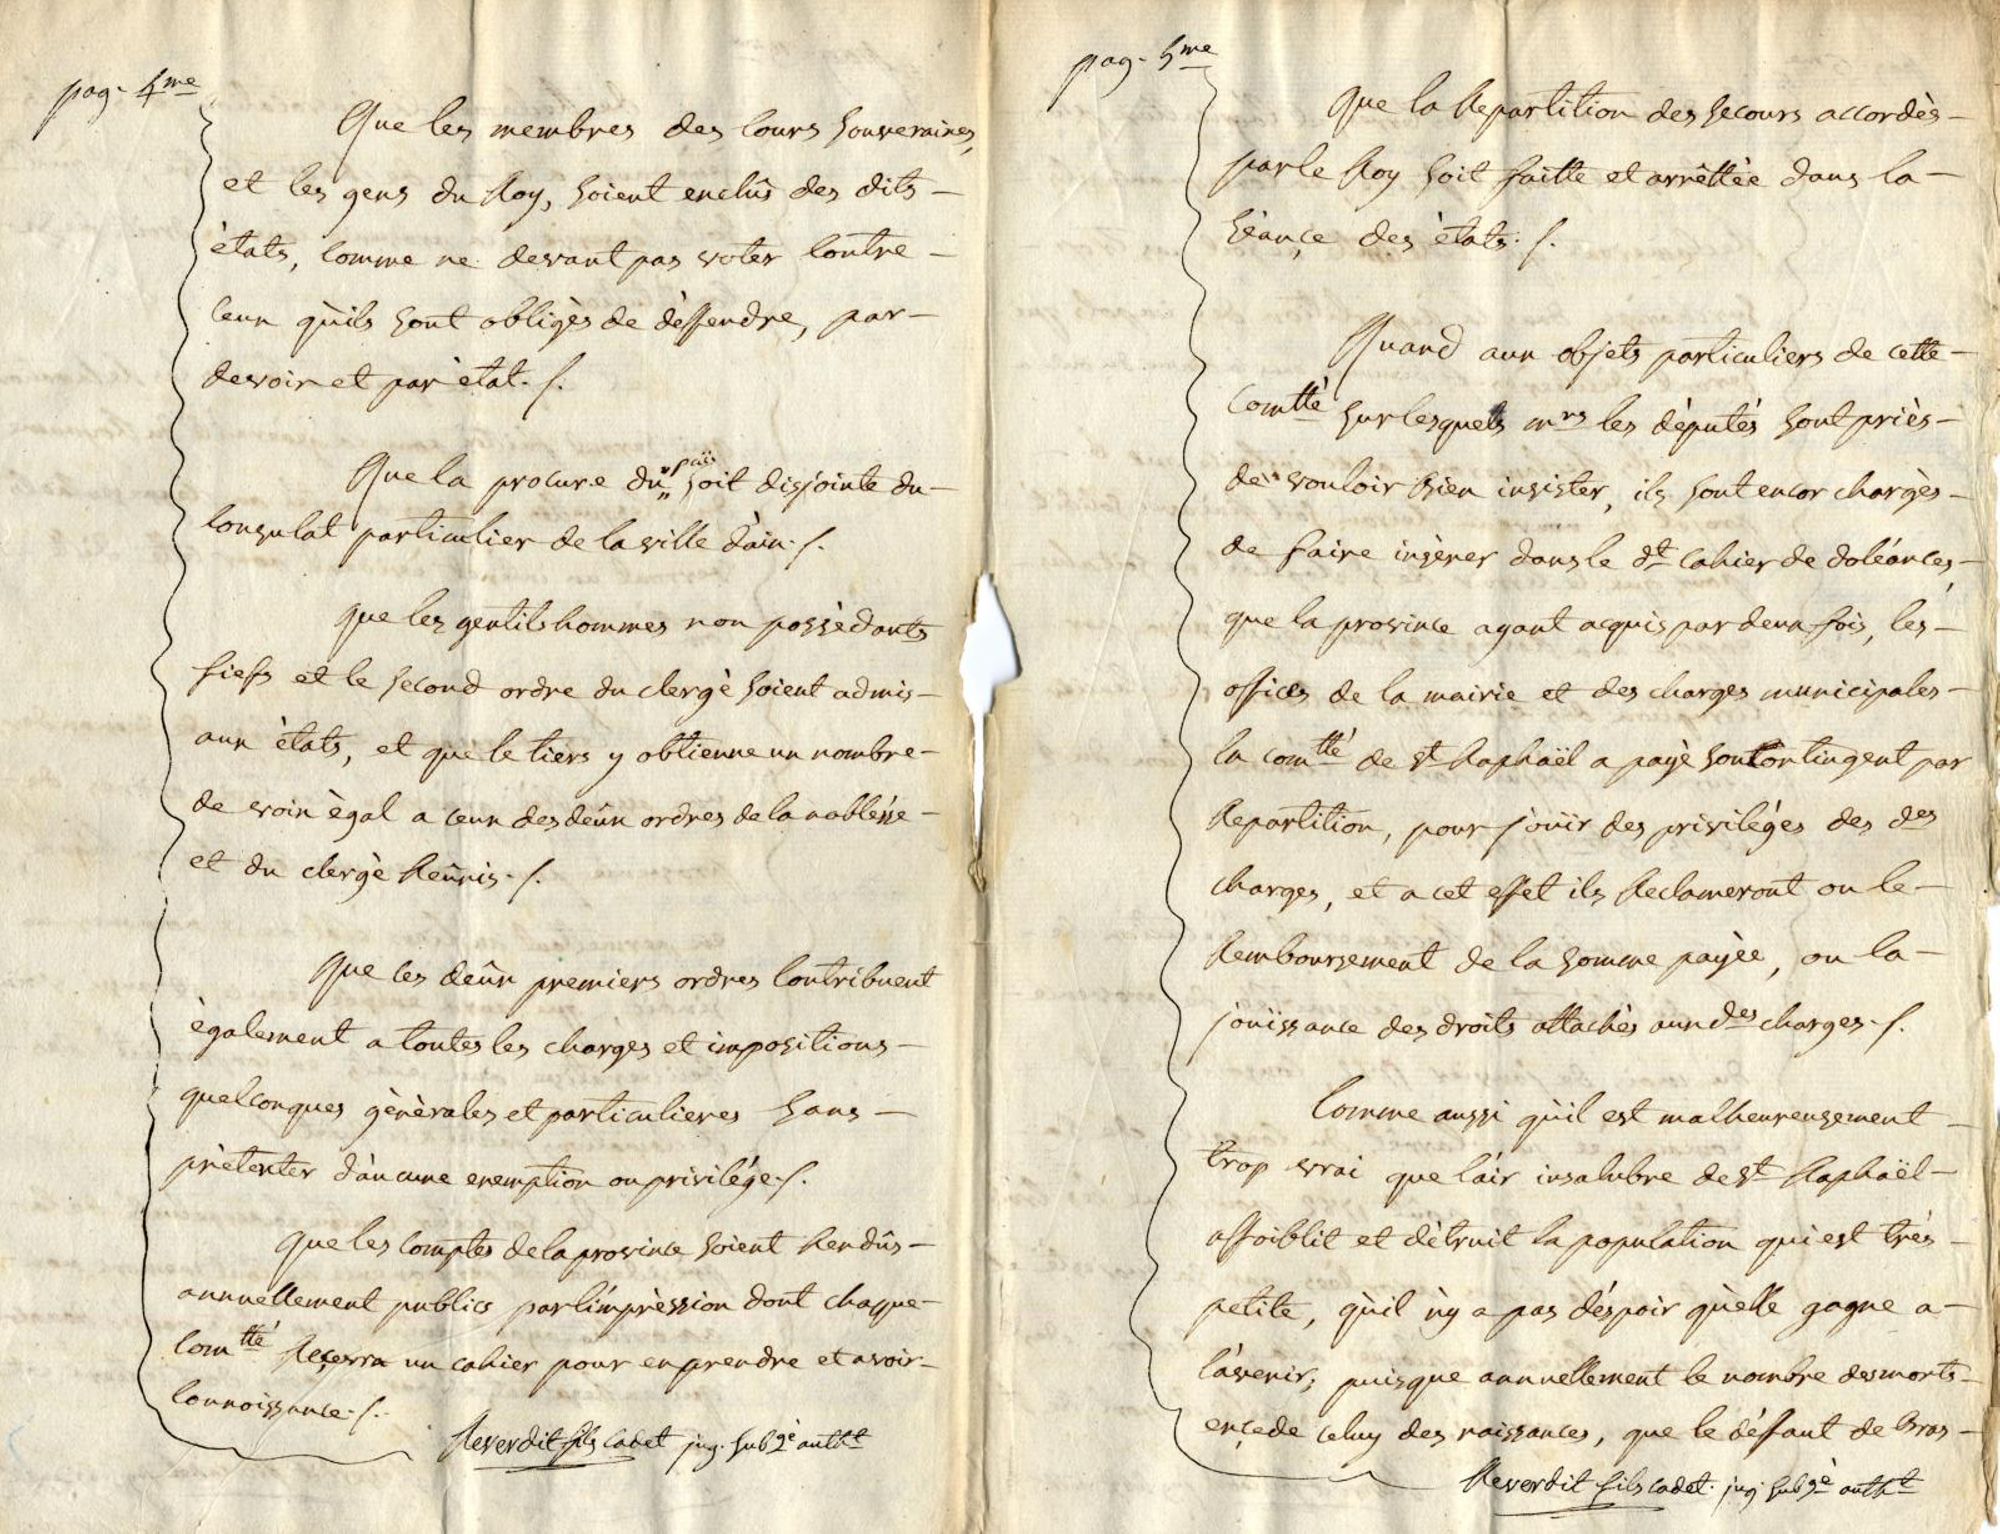 pag. 4me
Que les membres des Cours Souveraines,
et les gens du Roy, soient exclûs des dits
ètats, Comme ne devant pas voter Contre
Ceux qùils sont obligès de dèffendre, par
devoir et par ètat. /.
Que la procure du païs soit disjointe du
Consulat particulier de la ville d'aix. /.
que les gentilshommes non possèdants
fiefs et le second ordre du clergè soient admis
aux ètats, et que le tiers y obtienne un nombre
de voix ègal a ceux des deûx ordres de la nobléssе
et du clergè Reûnis. /.
Que les deûx premiers ordres Contribuent
ègalement a toutes les charges et impositions
quelconques gènèrales et particulieres sans
prètexter d'aucune exemption ou privilége. /.
Que les Comptes de la province soient Rendûs
annuellement publics par l'imprèssion dont chaque
Comtté Reçevra un cahier pour en prendre et avoir
Connoissance. /.
Reverdit fils Cadet jug. subgé autht
pag. 5me
Que la Repartition des secours accordès
par le Roy soit faitte et arrêttèe dans la
Sèançe des ètats. /.
Quand aux objets particuliers de cette
Comtté sur lesquels mrs les dèputés sont priès
de vouloir bien insister, ils sont encor chargès
de faire insèrer dans le dt Cahier de dolèances,
que la province ayant acquis par deux fois, les
offices de la mairie et des charges municipales
la comtté de St Raphaël a payè son Contingent par
Repartition, pour joüir des priviléges des des
charges, et a cet effet ils Reclameront ou le
Remboursement de la somme payèe, ou la
joüissance des droits attachès aux des charges. /.
Comme aussi qùil est malheureusement
trop vrai que l'air insalubre de St Raphaël
affoiblit et dètruit la population qui est très
petite, qùil ǹy a pas d'éspoir qùelle gagne a
l'avenir; puisque annuellement le nombre des morts
exçede celuy des naissances, que le dèffaut de bras
Reverdit fils Cadet. jug. subgé autht